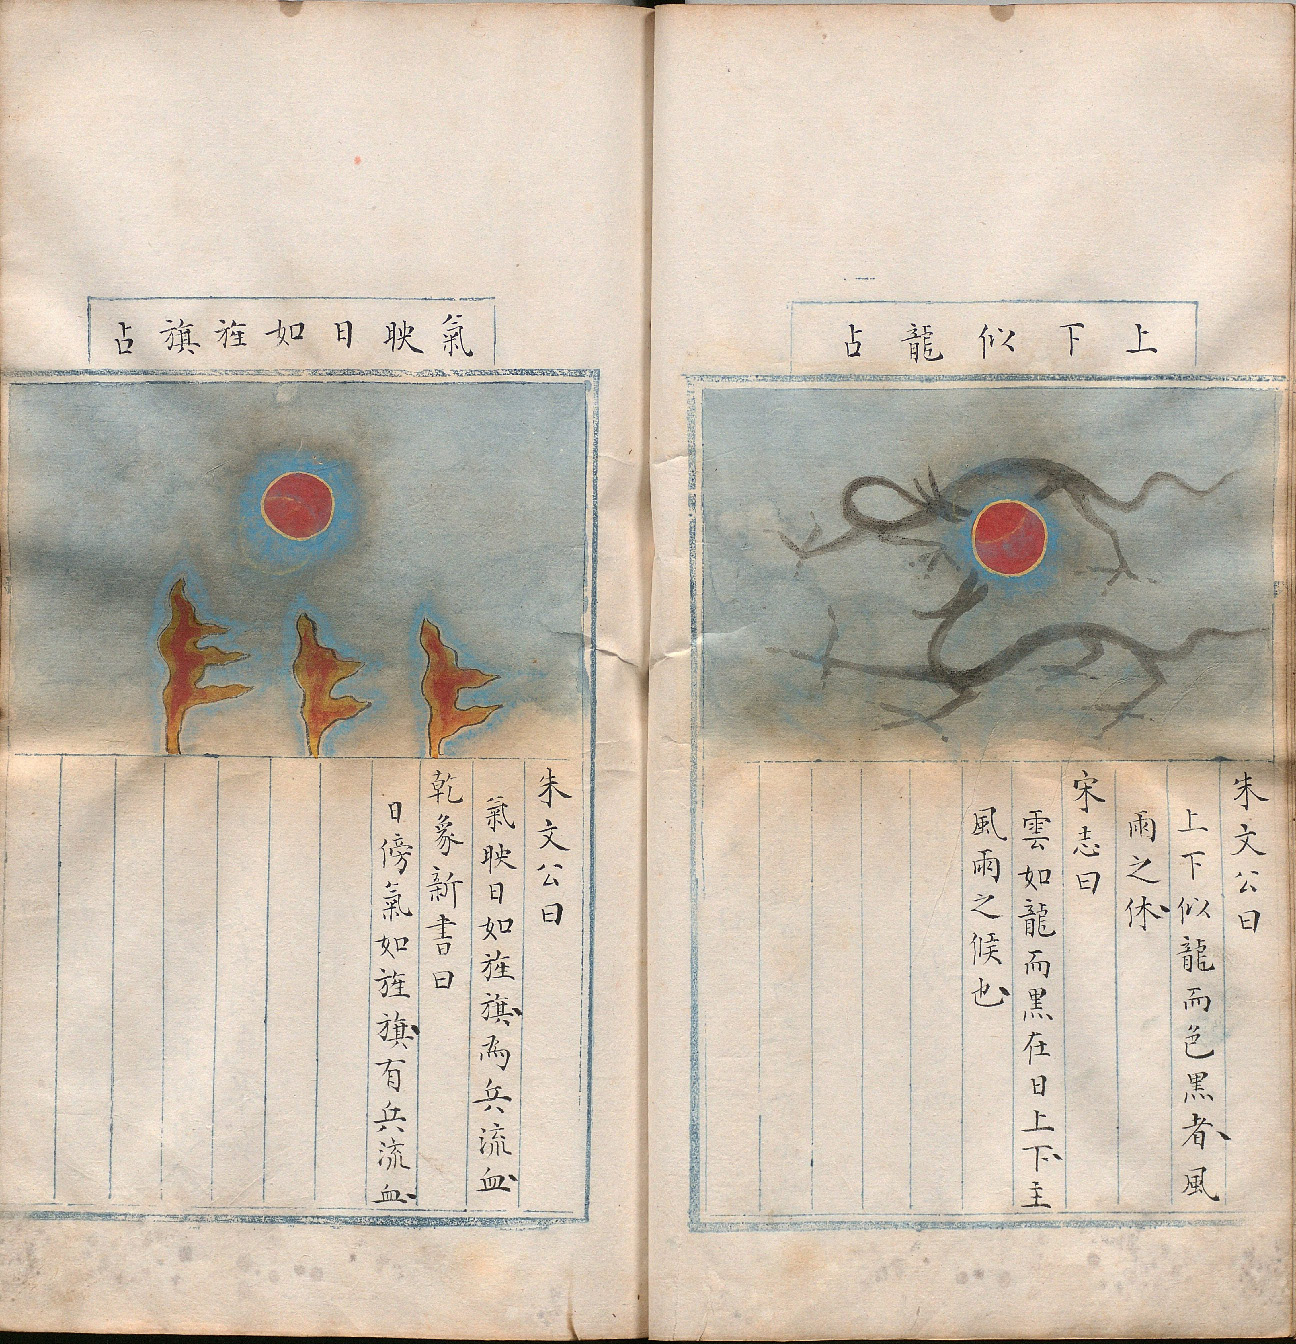 上下似龍占
朱文公曰
上下似龍而色黒者風
雨之休
宋志曰
雲如龍而黒在日上下主
風雨之候也
氣映日如旌旗占
朱文公曰
氣映日如旌旗為兵流血
乾象新書曰
日傍氣如旌旗有兵流血